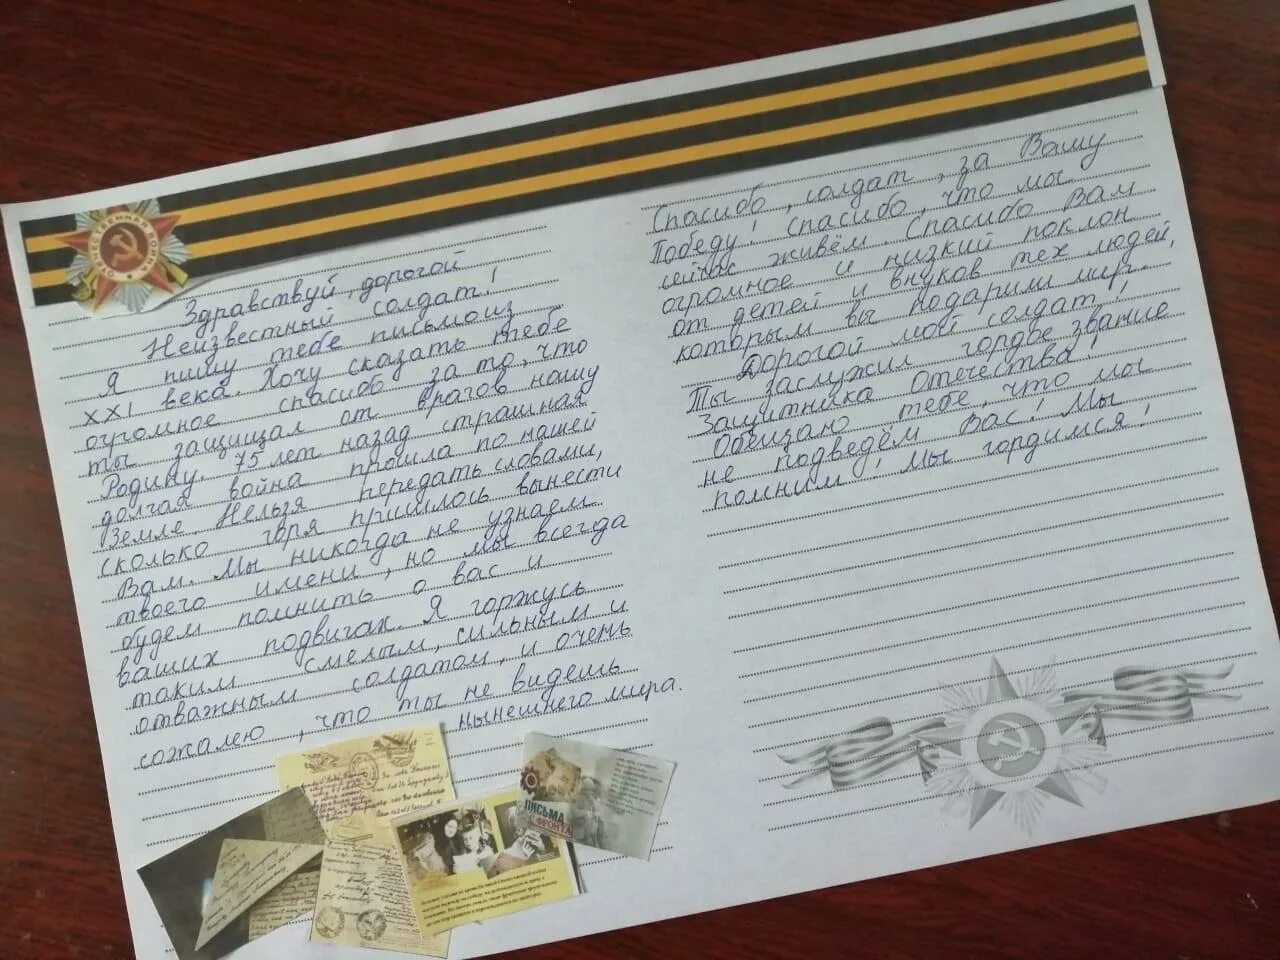 Здравствуй, дорогой
Неизвестный солдат!
Я пишу тебе письмо из
XXI века. Хочу сказать тебе
огромное спасибо за то, что
ты защищал от врагов нашу
Родину. 75 лет назад страшная
долгая война прошла по нашей
Земле. Нельзя передать словами,
сколько горя пришлось вынести
Вам. Мы никогда не узнаем
твоего имени, но мы всегда
будем помнить о вас и
ваших подвигах. Я горжусь
таким смелым, сильным и
отважным солдатом, и очень
сожалею, что ты не видешь
нынешнего мира.
Спасибо, солдат, за Вашу
Победу! Спасибо, что мы
сейчас живём. Спасибо Вам
огромное и низкий поклон
от детей и внуков тех людей,
которым вы подарили мир.
Дорогой мой солдат!
Ты заслужил гордое звание
Защитника Отечества!
Обещаю тебе, что мы
не подведём Вас! Мы
помним! Мы гордимся!
ОТЕЧЕСТВЕННАЯ ВОЙНА
ПИСЬМА
С ФРОНТА